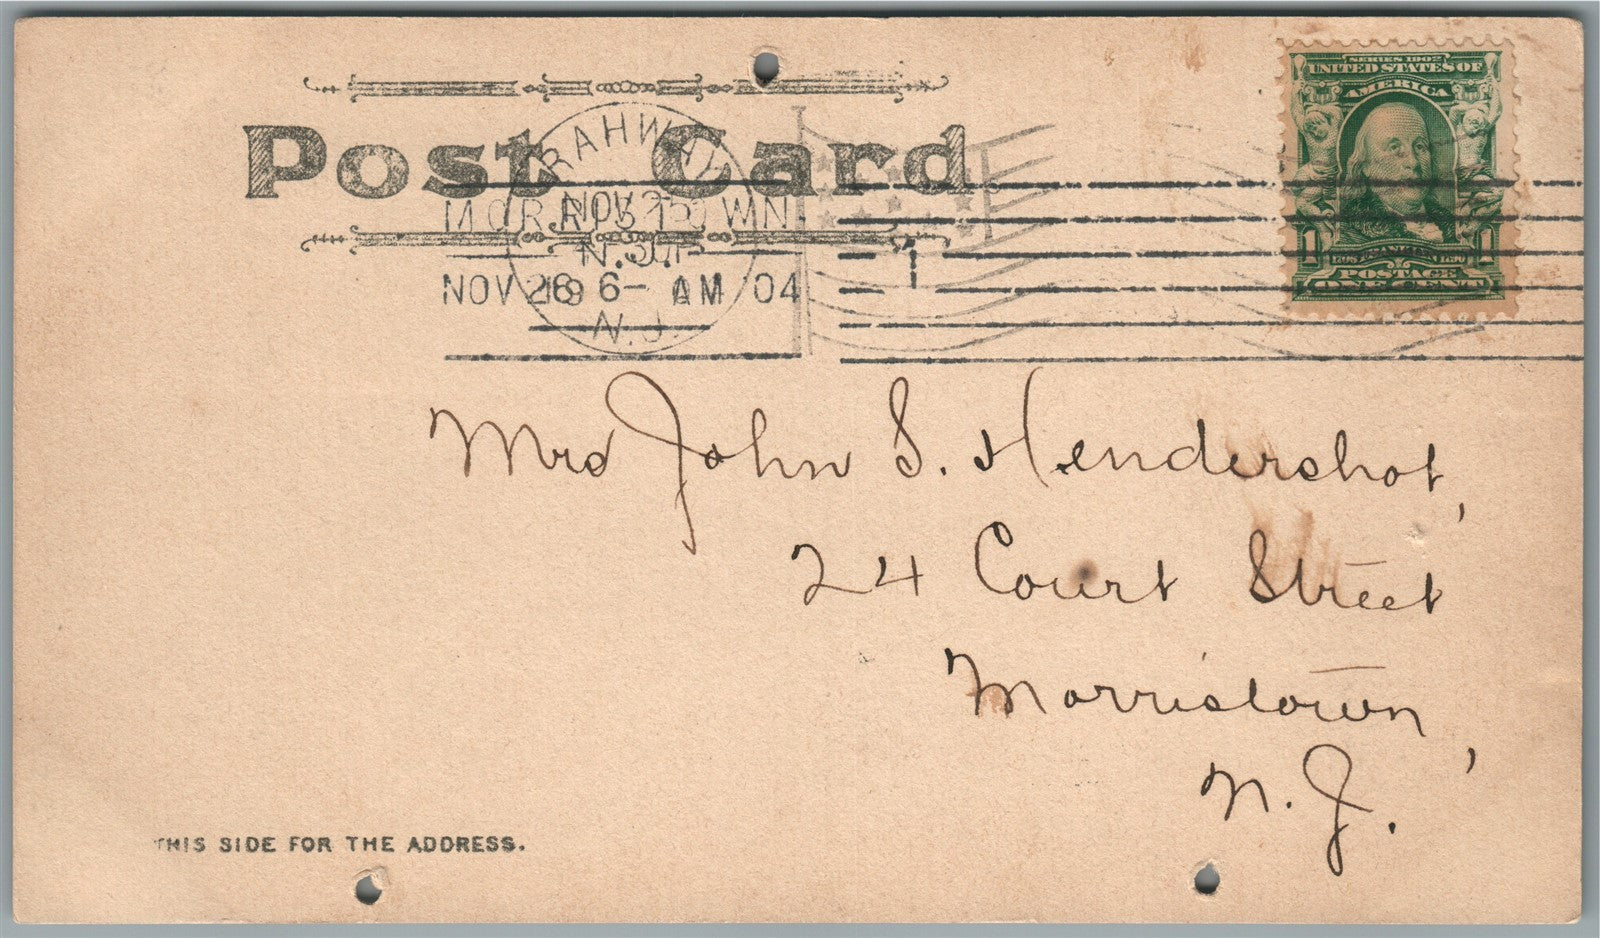 SERIES 1902
UNITED STATES OF
AMERICA
Post Card
RAHWAY
NOV 25
MORRISTOWN
N.J.
NOV 28 6- AM '04
N.J.
1
1 1
POSTAGE
ONE CENT
Mrs John S. Hendershot,
24 Court Street
Morristown,
N. J.
THIS SIDE FOR THE ADDRESS.